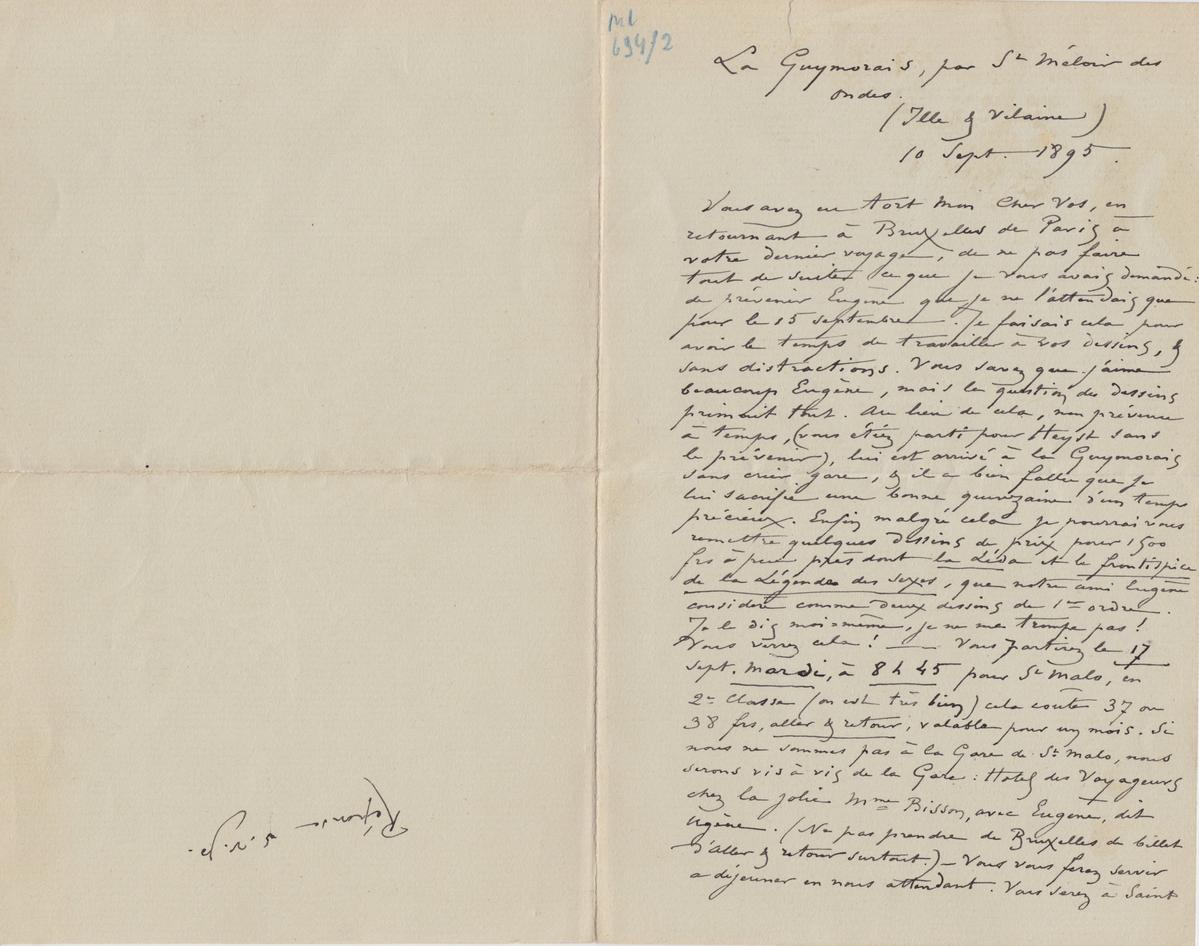 ML
694/2
La Guymorais, par St Méloir des
ondes.
(Ille & Vilaine)
10 Sept. 1895.
Vous avez eu tort mon cher Vos, en
retournant à Bruxelles de Paris à
votre dernier voyage, de ne pas faire
tout de suite, ce que je vous avais demandé:
de prévenir Eugène que je ne l'attendais que
pour le 15 septembre. Je faisais cela pour
avoir le temps de travailler à vos dessins, &
sans distractions. Vous savez que j'aime
beaucoup Eugène, mais la question des dessins
primait tout. Au lieu de cela, non prévenu
à temps, (vous étiez parti pour Heyst sans
le prévenir), lui est arrivé à la Guymorais
sans crier gare, & il a bien fallu que je
lui sacrifie une bonne quinzaine d'un temps
précieux. Enfin malgré cela je pourrai vous
remettre quelques dessins de prix pour 1500
frs à peu près dont la Léda et le frontispice
de la Légende des sexes, que notre ami Eugène
considère comme deux dessins de 1er ordre.
Je le dis moi-même, je ne me trompe pas!
Vous verrez cela! — Vous partirez le 17
Sept. Mardi, à 8 h 45 pour St Malo, en
2e Classe (on est très bien) cela coûte 37 ou
38 frs, aller & retour, valable pour un mois. Si
nous ne sommes pas à la Gare de St Malo, nous
serons vis à vis de la Gare: Hotel des Voyageurs
chez la jolie Mme Bisson, avec Eugène, dit
Ugène. (Ne pas prendre de Bruxelles de billet
d'Aller & retour surtout.) — Vous vous ferez servir
a déjeuner en nous attendant. Vous serez à Saint
Réponse
s.v.p.